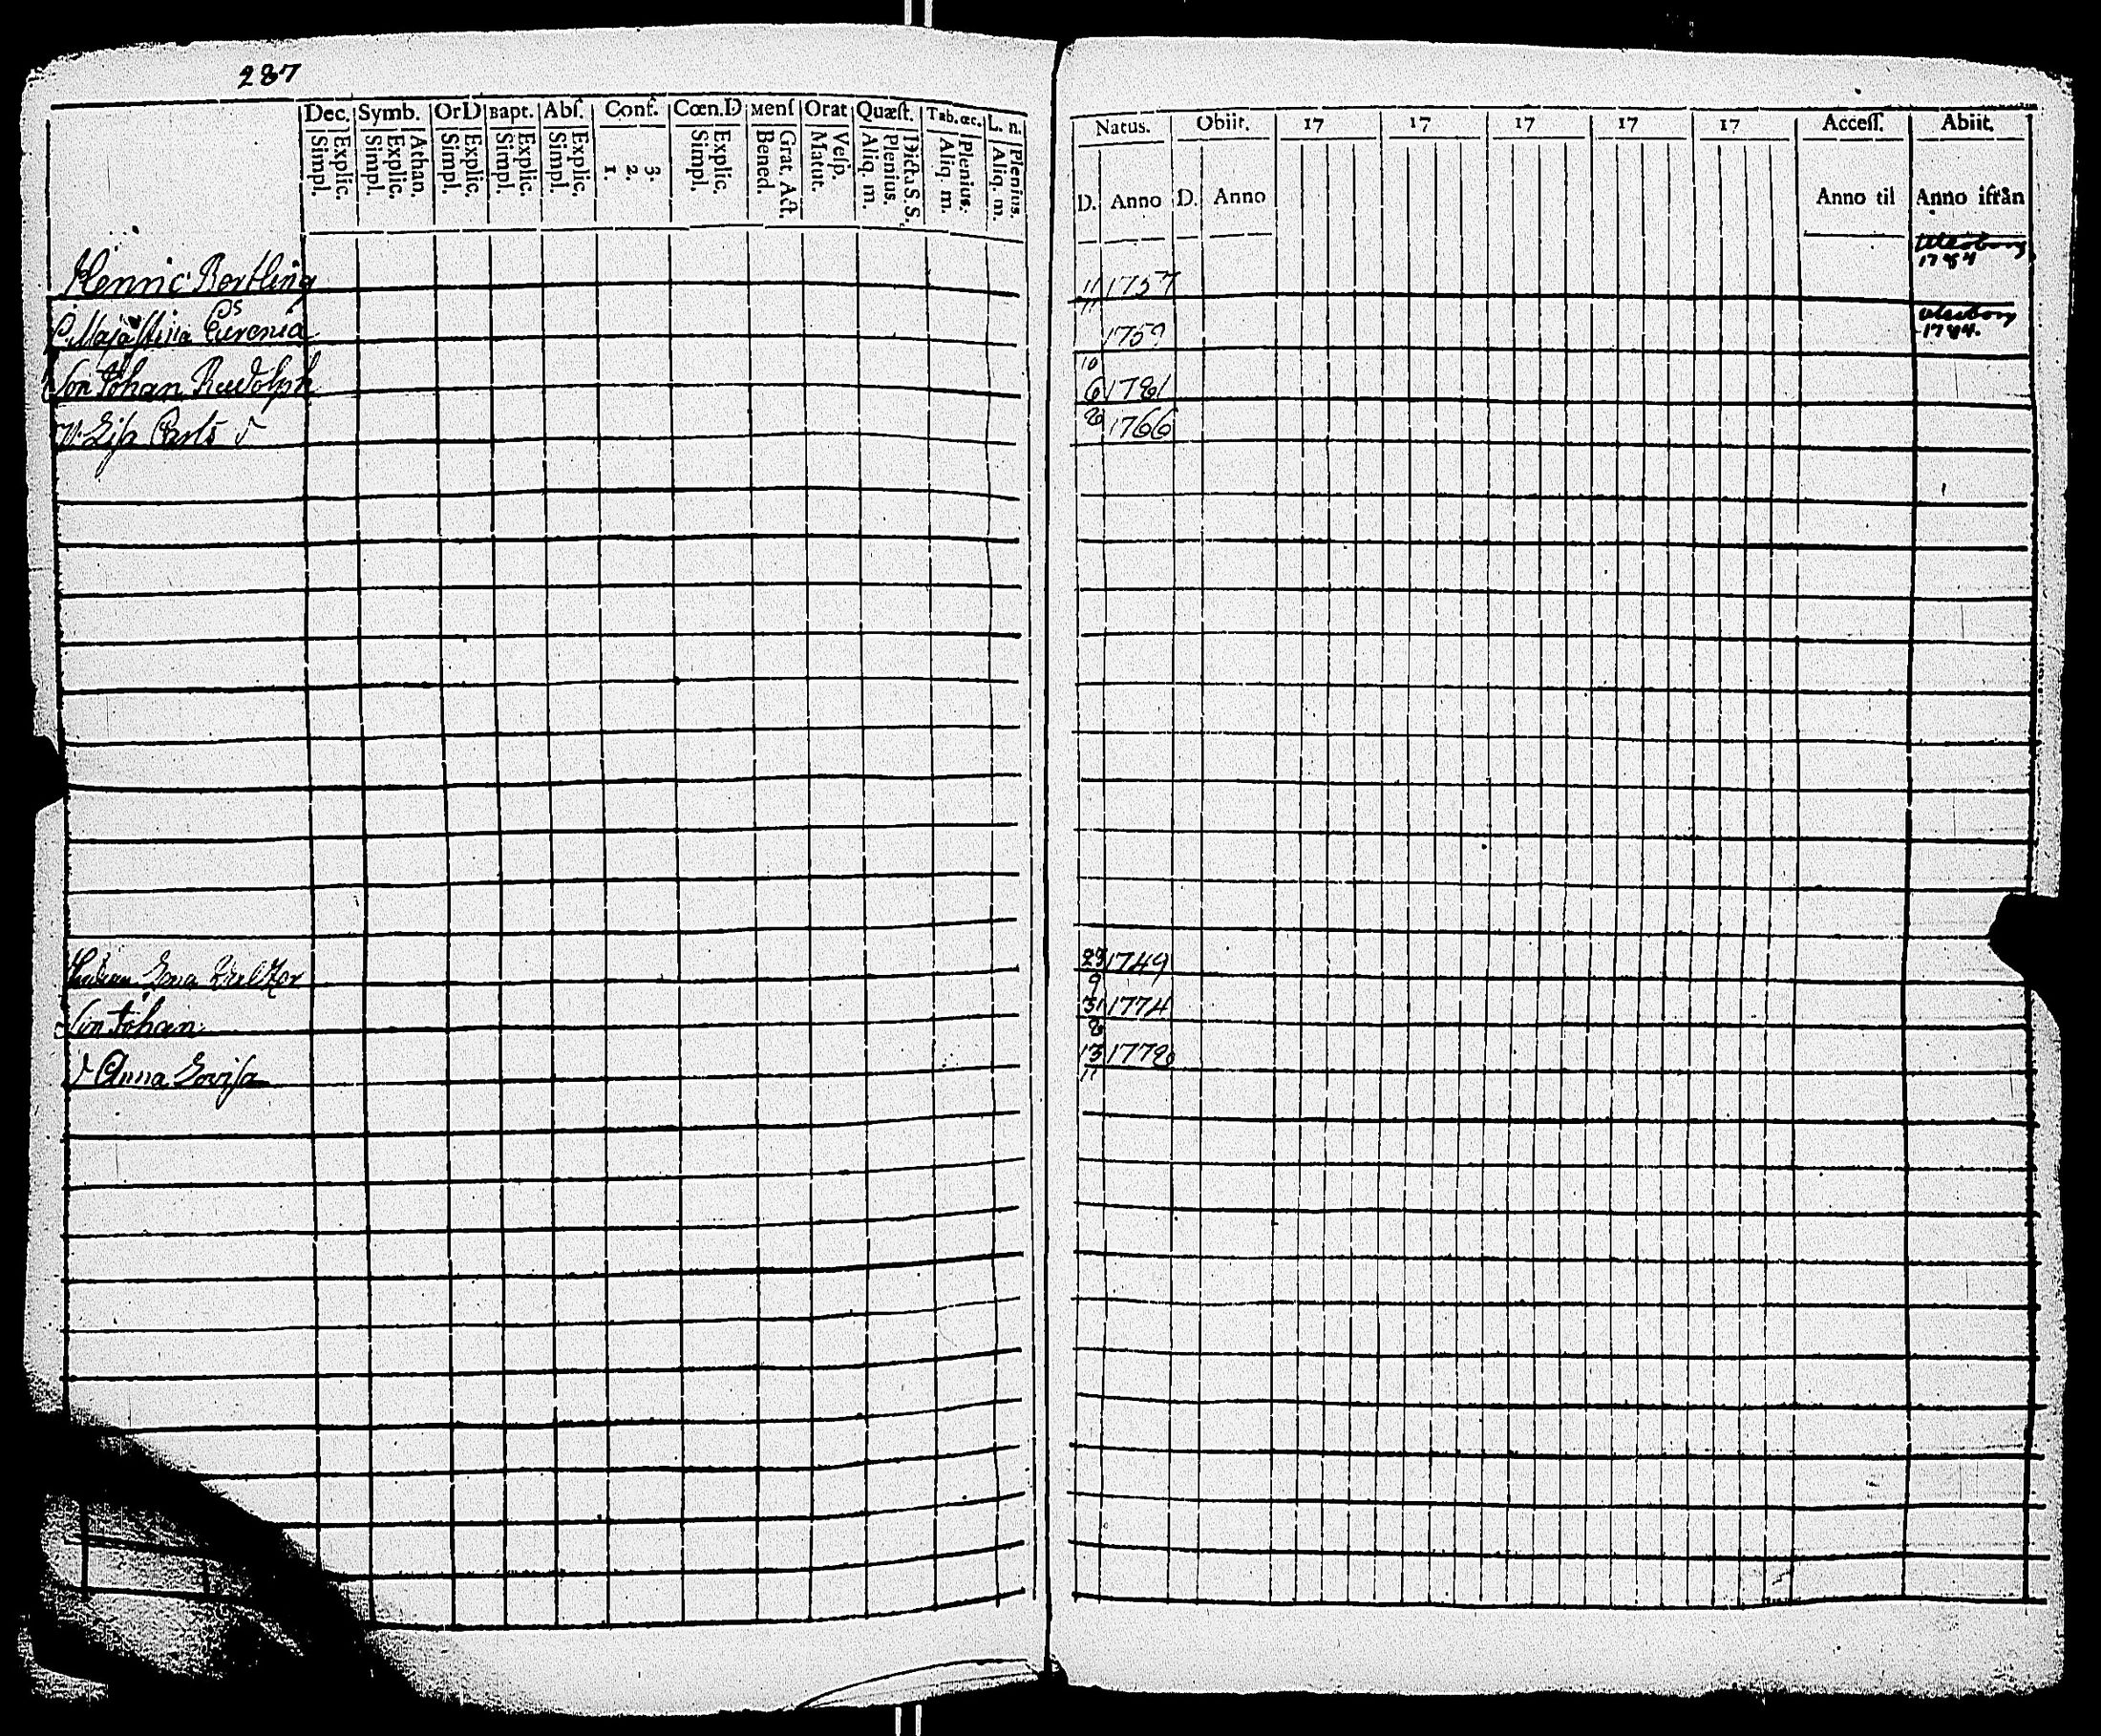 237
Dec. Symb. OrD Bapt. Abſ. Conf. Cœn.D Menſ Orat Quæſt. Tab. œc. L. n.
Simpl. Explic. Simpl. Explic. Athan. Simpl. Explic. Simpl. Explic. Simpl. Explic. 1. 2. 3. Simpl. Explic. Bened. Grat. Act. Matut. Veſp. Aliq. m. Plenius. Dicta S. S. Aliq. m. Plenius. Aliq. m. Plenius.
Natus. Obiit. 17 17 17 17 17 Acceſſ. Abiit.
D. Anno D. Anno Anno til Anno ifrån
Henric Bertling 11 1757 1784
Maja Stina 1759 1784.
Son Johan Rudolph 10 6 1781
Lisa 1766
29 9 1749
Son Johan 31 8 1774
Anna Lovisa 13 11 1778